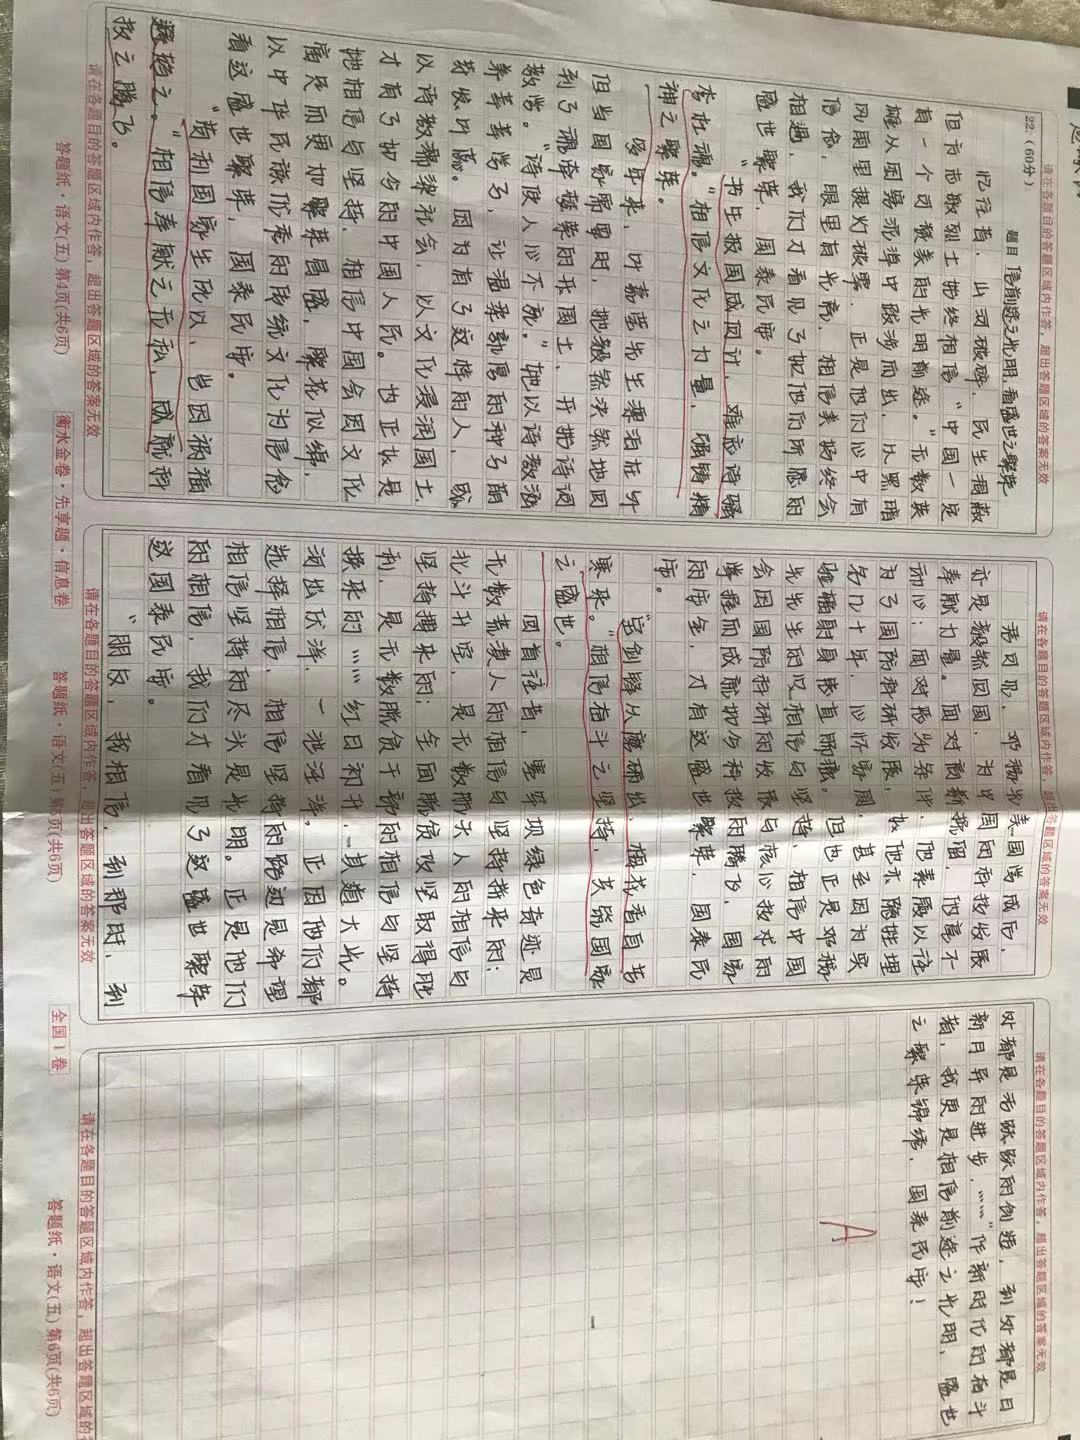 请在各题目的答题区域内作答，超出答题区域的答案无效
22.（60分）
题目 信前途之光明，看盛世之繁华
忆往昔，山河破碎，民生凋敝
但方志敏烈士始终相信“中国一定
有一个可赞美的光明前途。”无数英
雄从困窘泥潭中跋涉而出，从黑暗
风雨里提灯破雾，正是他们心中有
信念，眼里有光亮，相信美好终会
相遇，我们才看见了如他们所愿的
盛世繁华，国泰民安。
“书生报国成何计，难忘诗骚
李杜魂。”相信文化之力量，磅礴精
神之繁华。
多年来，叶嘉莹先生漂泊在外
但当国家需要时，她毅然决然地回
到了魂牵梦萦的祖国土，开始诗词
教学。“诗使人心不死。”她以诗教滋
养莘莘学子，让温柔敦厚的种子萌
芽发叶
。因为有了这样的人，
以诗教濡染社会，以文化浸润国土
才有了如今的中国人民。也正如是
她相信与坚持，相信中国会因文化
富足而更加繁荣昌盛，繁花似锦，
以中华民族优秀的传统文化为信念
看这盛世繁华，国泰民安。
“苟利国家生死以，岂因祸福
避趋之。”相信奉献之无私，成就科
技之腾飞。
请在各题目的答题区域内作答，超出答题区域的答案无效
答题纸·语文(五) 第4页(共6页)
衡水金卷·先享题·信息卷
请在各题目的答题区域内作答，超出答题区域的答案无效
君可见，邓稼先美国学成后，
亦是毅然回国，为中国的科技发展
奉献力量。面对高薪挽留，他毫不
动心；面对恶劣条件，他素履以往
为了国防科研发展，他亦隐姓埋
名几十年，心怀家国，甚至因为实
验辐射身患直肠癌。但也正是邓稼
先先生的以相信与坚持，相信中国
会因国防科研的发展与核心技术的
掌握而成就如今科技的腾飞，国家
的安全，才有这盛世繁华，国泰民
安。
“宝剑锋从磨砺出，梅花香自苦
寒来。”相信奋斗之坚持，共铸国家
之盛世。
回首往昔，塞罕坝绿色奇迹是
无数荒漠人的相信与坚持拼来的；
北斗升空，是无数航天人的相信与
坚持搏来的；全面脱贫攻坚取得胜
利，是无数脱贫干部的相信与坚持
换来的……红日初升，其道大光。
河出伏流，一泻汪洋。正因他们都
选择相信，相信坚持的路边是希望
相信坚持的尽头是光明。正是他们
的相信，我们才看见了这盛世繁华
这国泰民安。
“朋友，我相信，到那时，到
请在各题目的答题区域内作答，超出答题区域的答案无效
答题纸·语文(五) 第5页(共6页)
全国Ⅰ卷
请在各题目的答题区域内作答，超出答题区域的答案无效
处都是活跃跃的创造，到处都是日
新月异的进步，……”作新时代的奋斗
者，我更是相信前途之光明，盛世
之繁荣锦绣，国泰民安！
A
请在各题目的答题区域内作答，超出答题区域的答
答题纸·语文(五) 第6页(共6页)